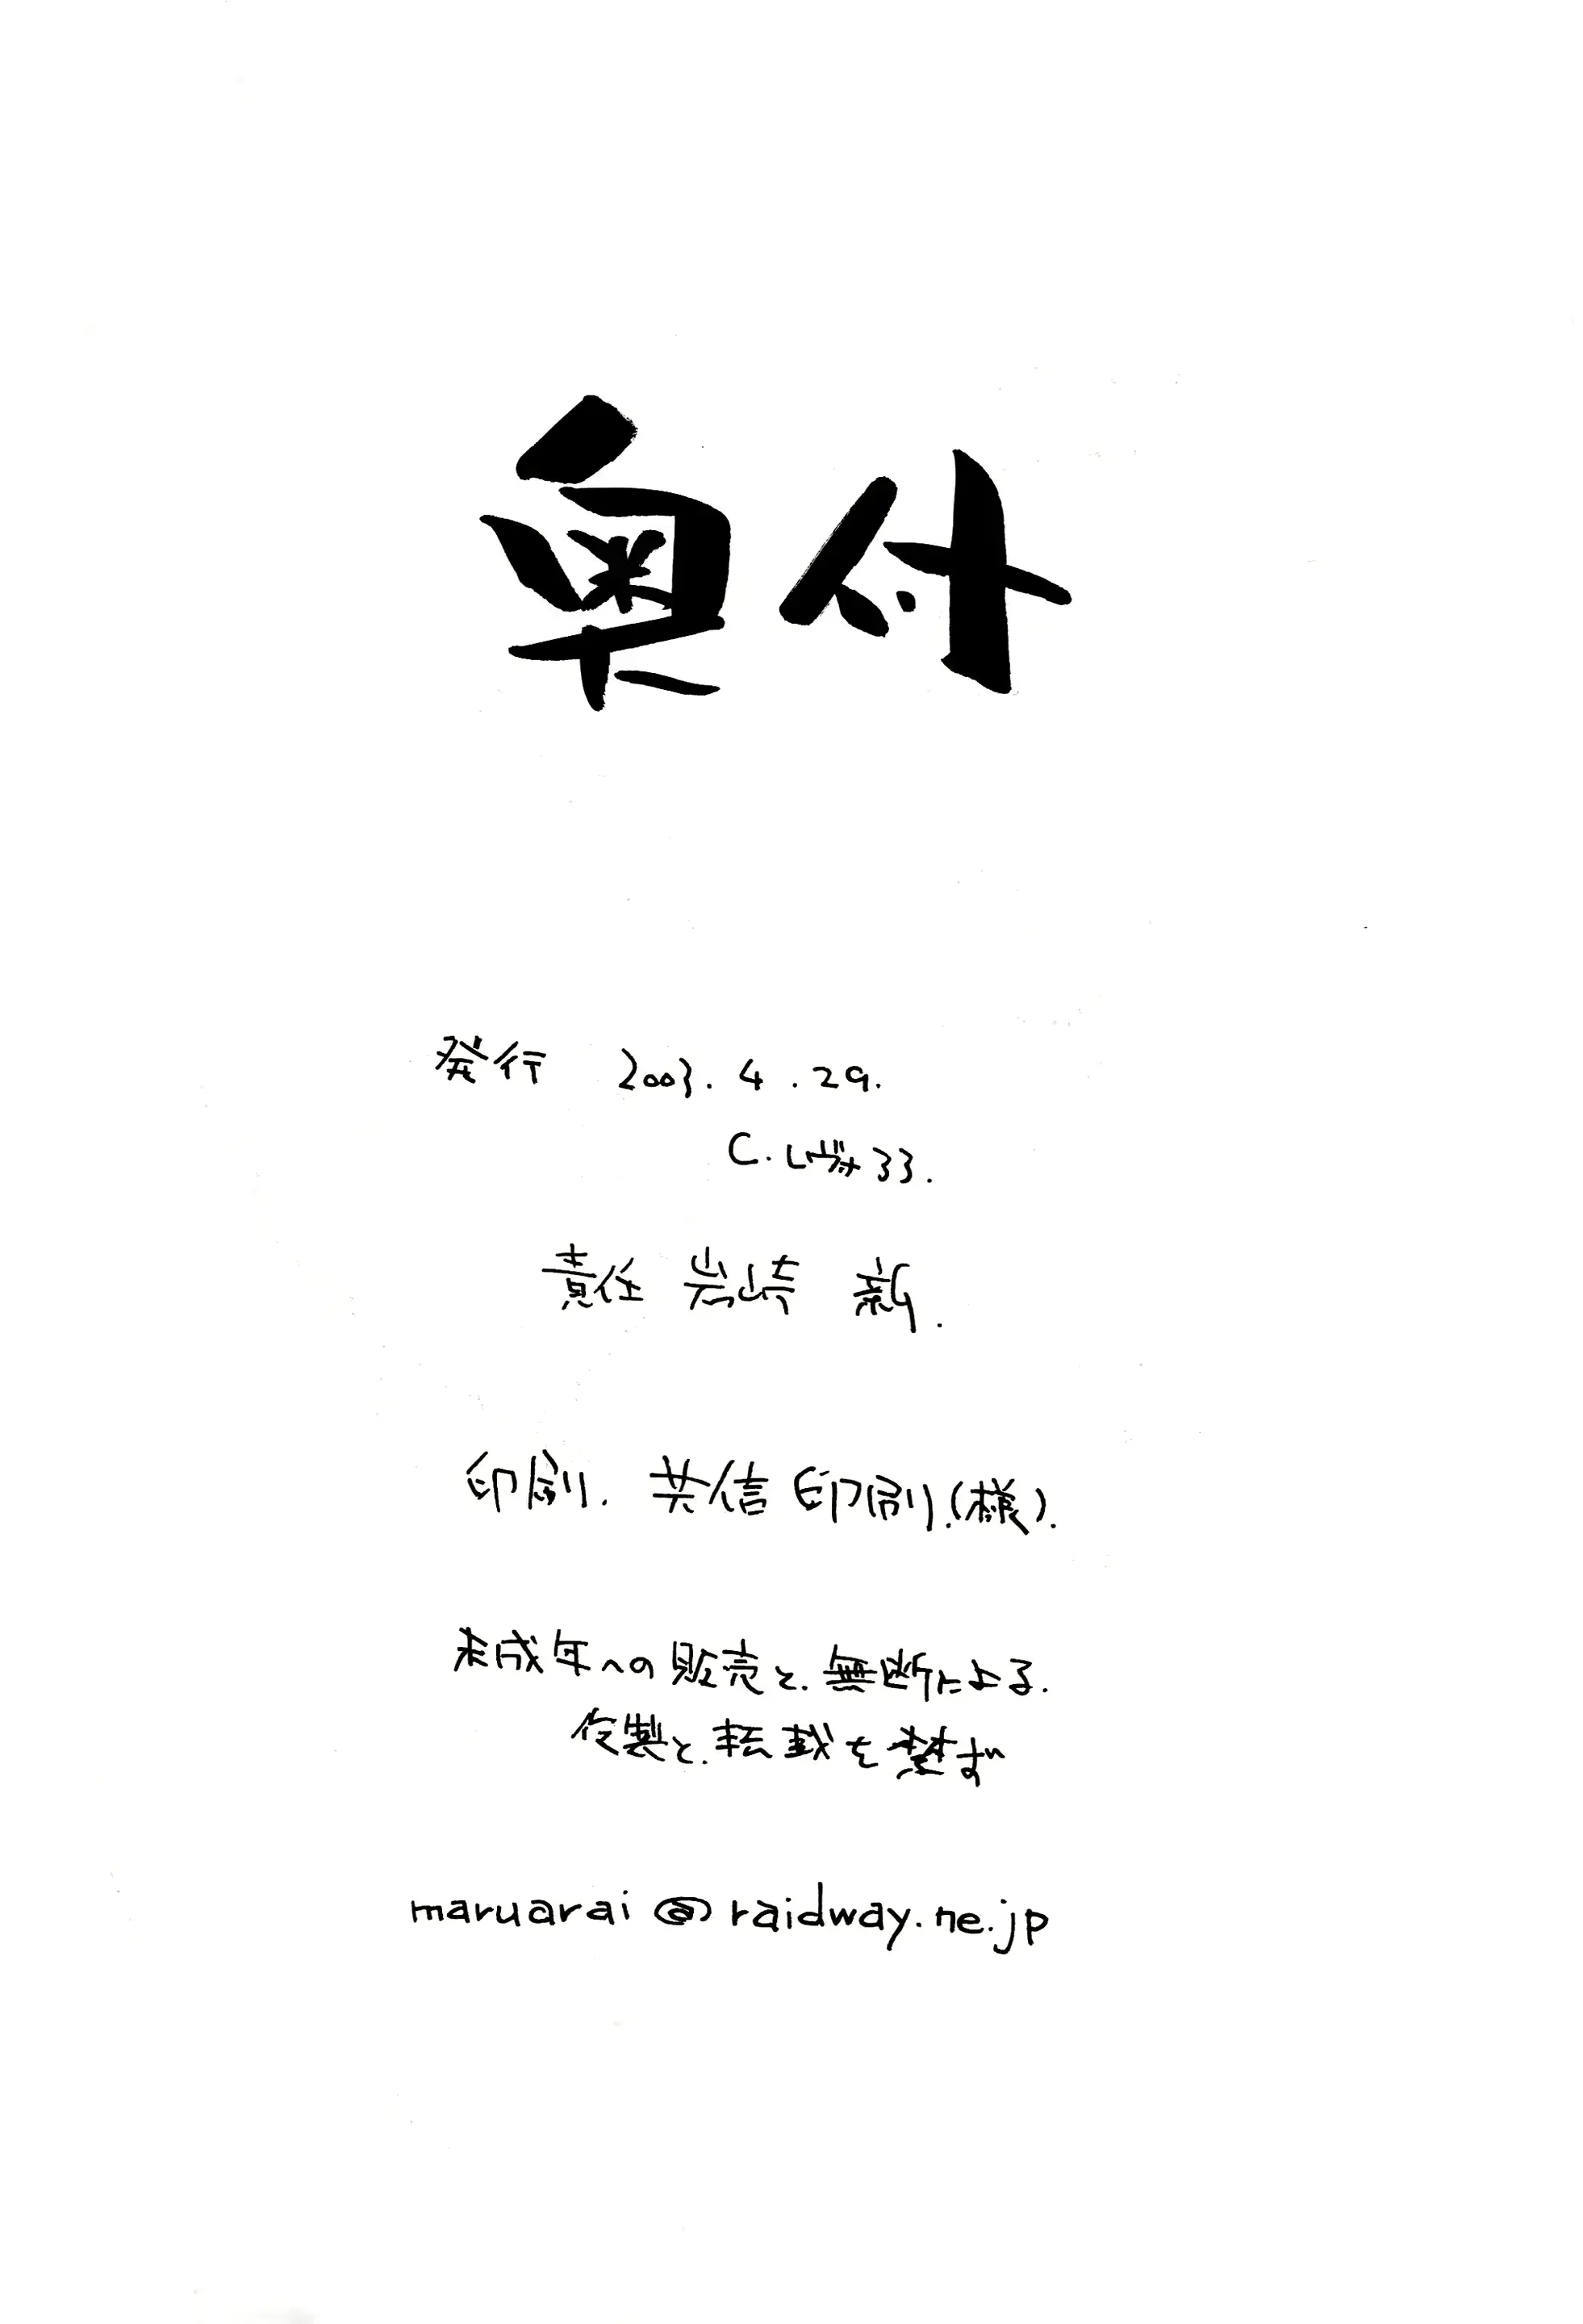 奥付
発行 2003.4.29.
C.レヴォ33.
責任 岩崎 新.
印刷. 共信印刷.(様).
未成年への販売と.無断による.
複製と.転載を禁ず
maruarai@raidway.ne.jp